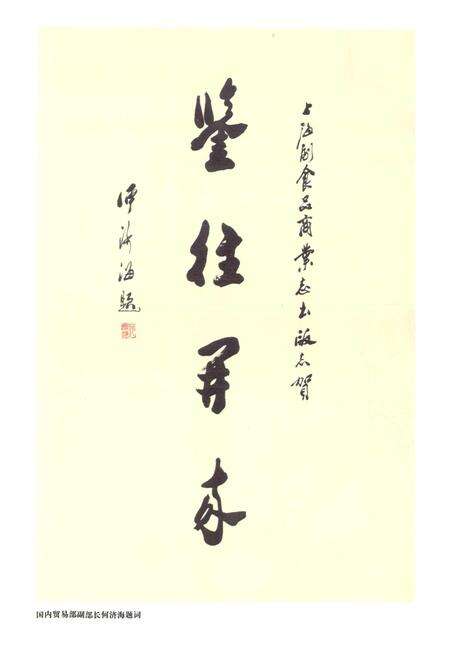 上海副食品商業志出版志贺
鑒往开来
何济海题
国内贸易部副部长何济海题词